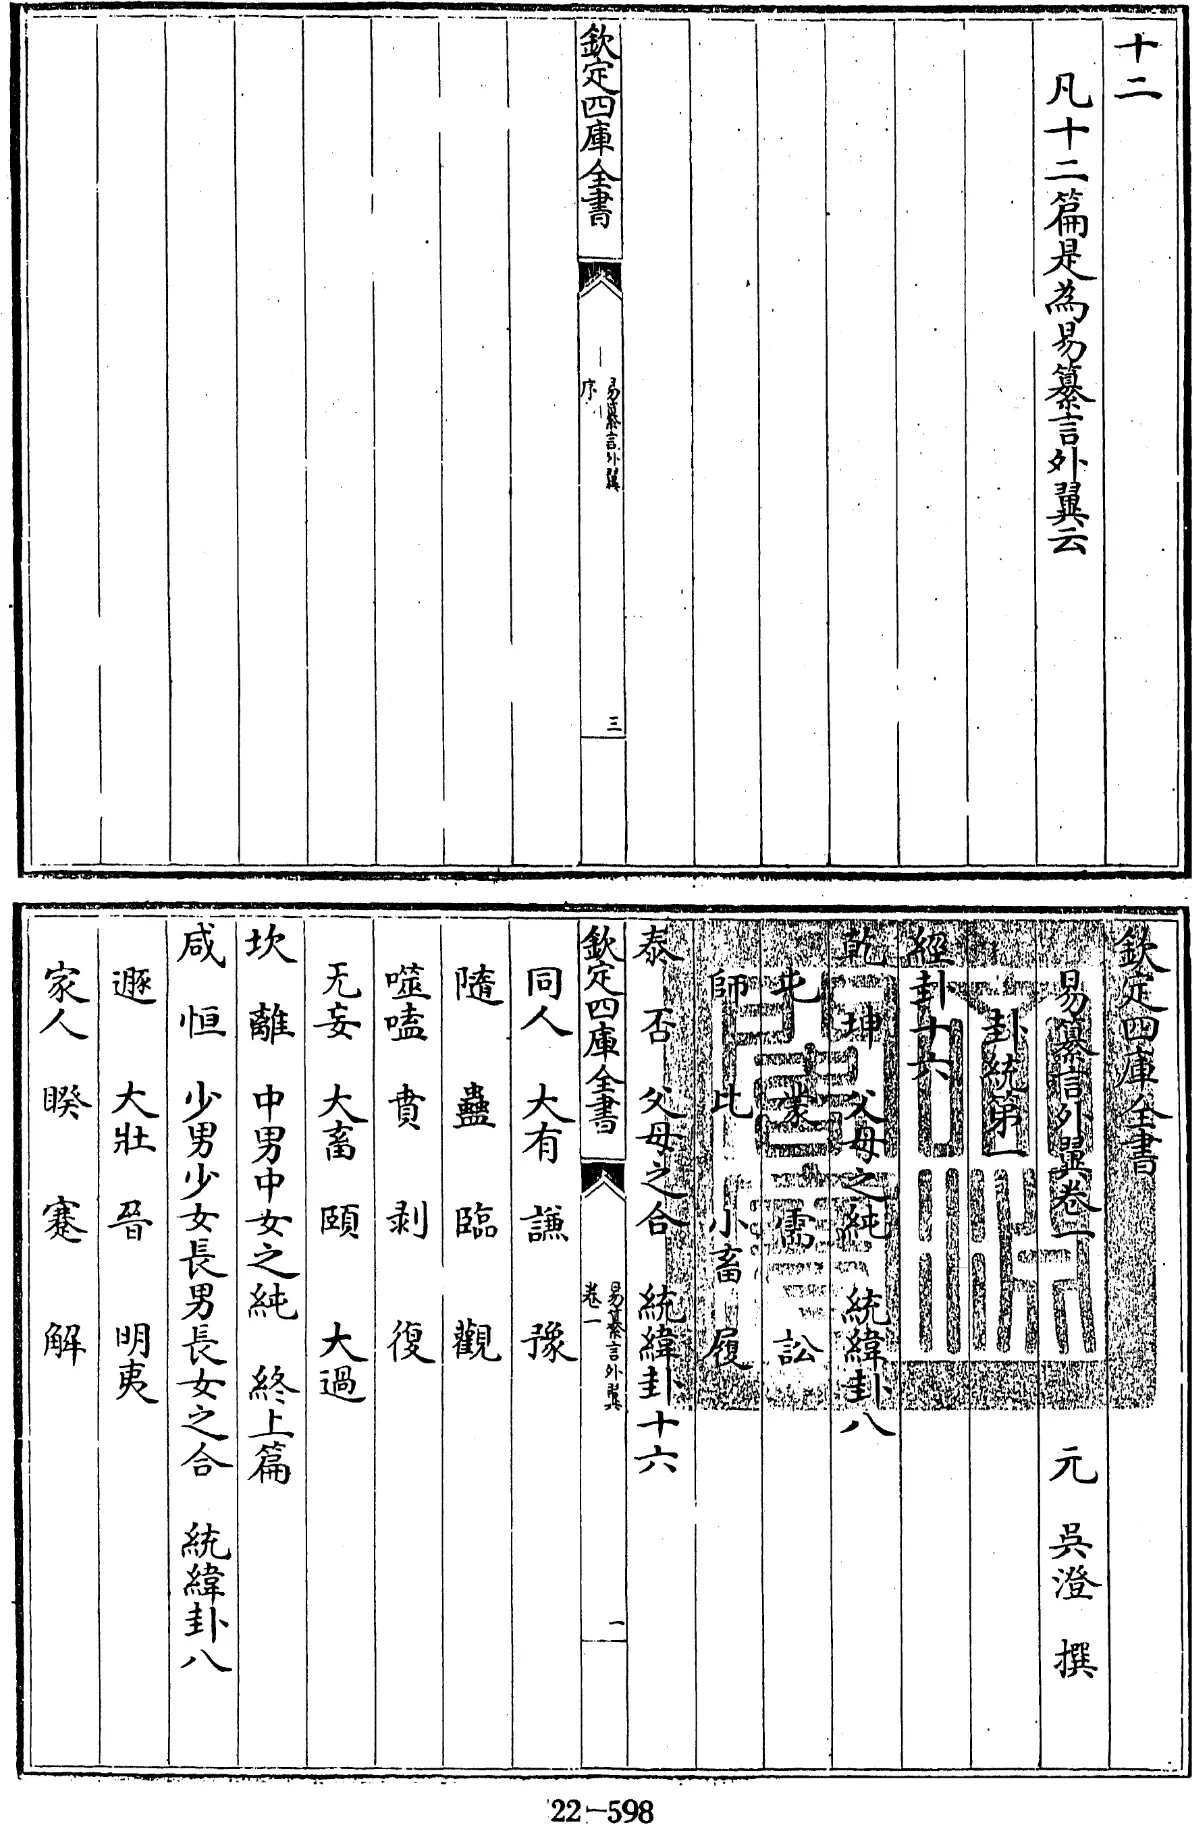 十二
凡十二篇是為易纂言外翼云
欽定四庫全書
易纂言外翼
序
三
欽定四庫全書
易纂言外翼卷一 元 吳澄 撰
卦統第一
經卦十六
乾 坤 父母之純 統緯卦八
屯 蒙 需 訟
師 比 小畜 履
泰 否 父母之合 統緯卦十六
欽定四庫全書
易纂言外翼
卷一
一
同人 大有 謙 豫
隨 蠱 臨 觀
噬嗑 賁 剥 復
无妄 大畜 頤 大過
坎 離 中男中女之純 終上篇
咸 恒 少男少女長男長女之合 統緯卦八
遯 大壯 晉 明夷
家人 睽 蹇 解
22-598